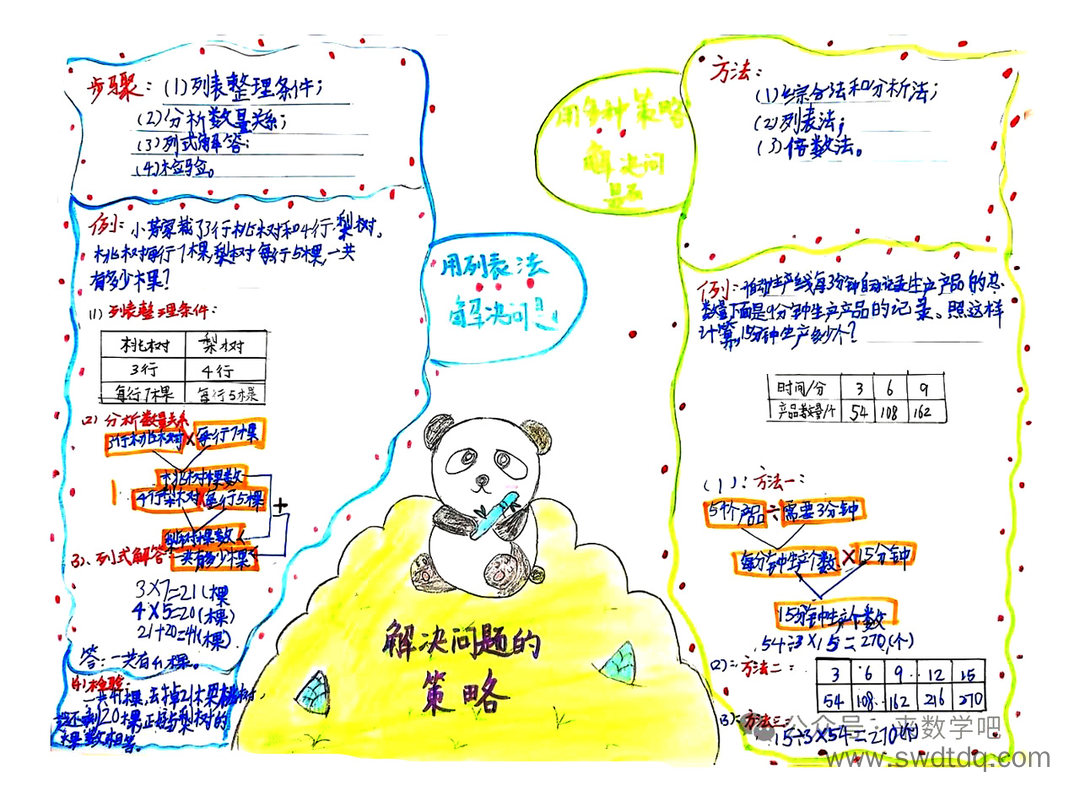 步骤：(1)列表整理条件；
(2)分析数量关系；
(3)列式解答；
(4)检验。
例：小芳家栽了3行桃树和4行梨树，
桃树每行7棵，梨树每行5棵，一共
有多少棵？
(1)列表整理条件：
桃树 梨树
3行 4行
每行7棵 每行5棵
(2)分析数量关系
3行桃树×每行7棵
桃树棵数
4行梨树 每行5棵
+
梨树棵数
3)、列式解答 一共有多少棵
3×7=21(棵
4×5=20(棵)
21+20=41(棵)
答：一共有41棵。
4)检验：
一共41棵，去掉21棵桃树，
还剩20棵正好与梨树的
棵数相等。
用列表法
解决问题
解决问题的
策略
用多种策略
解决问
题
方法：
(1)综合法和分析法；
(2)列表法；
(3)倍数法。
例：自动生产线每3分钟自动记录生产产品的总
数量，下面是9分钟生产产品的记录。照这样
计算，15分钟生产多少个？
时间/分 3 6 9
产品数量/个 54 108 162
(1)：方法一：
54个产品÷需要3分钟
每分钟生产个数×15分钟
15分钟生产个数
54÷3×15=270(个)
(2)：方法二：
3 6 9 12 15
54 108 162 216 270
(3)：方法三：
15÷3×54=270(个)
公众号：来数学吧
www.swdtdq.com